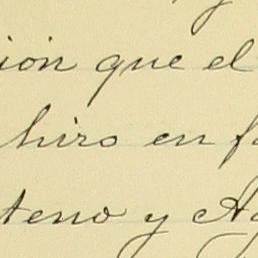 ión que el
hizo en fa
teno y Ag